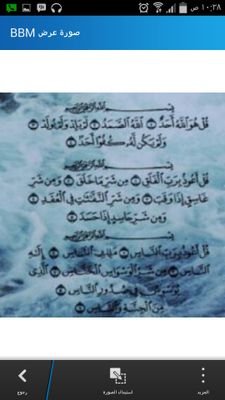 ١٠:٣٨ ص
صورة عرض BBM
بسم الله الرحمن الرحيم
قُلْ هُوَ اللَّهُ أَحَدٌ ۝ اللَّهُ الصَّمَدُ ۝ لَمْ يَلِدْ وَلَمْ يُولَدْ ۝
وَلَمْ يَكُن لَّهُ كُفُوًا أَحَدٌ ۝
بسم الله الرحمن الرحيم
قُلْ أَعُوذُ بِرَبِّ الْفَلَقِ ۝ مِن شَرِّ مَا خَلَقَ ۝ وَمِن شَرِّ
غَاسِقٍ إِذَا وَقَبَ ۝ وَمِن شَرِّ النَّفَّاثَاتِ فِي الْعُقَدِ ۝
وَمِن شَرِّ حَاسِدٍ إِذَا حَسَدَ
بسم الله الرحمن الرحيم
قُلْ أَعُوذُ بِرَبِّ النَّاسِ ۝ مَلِكِ النَّاسِ ۝ إِلَهِ
النَّاسِ ۝ مِن شَرِّ الْوَسْوَاسِ الْخَنَّاسِ ۝ الَّذِي
يُوَسْوِسُ فِي صُدُورِ النَّاسِ ۝
مِنَ الْجِنَّةِ وَالنَّاسِ
رجوع
استبدال الصورة
المزيد